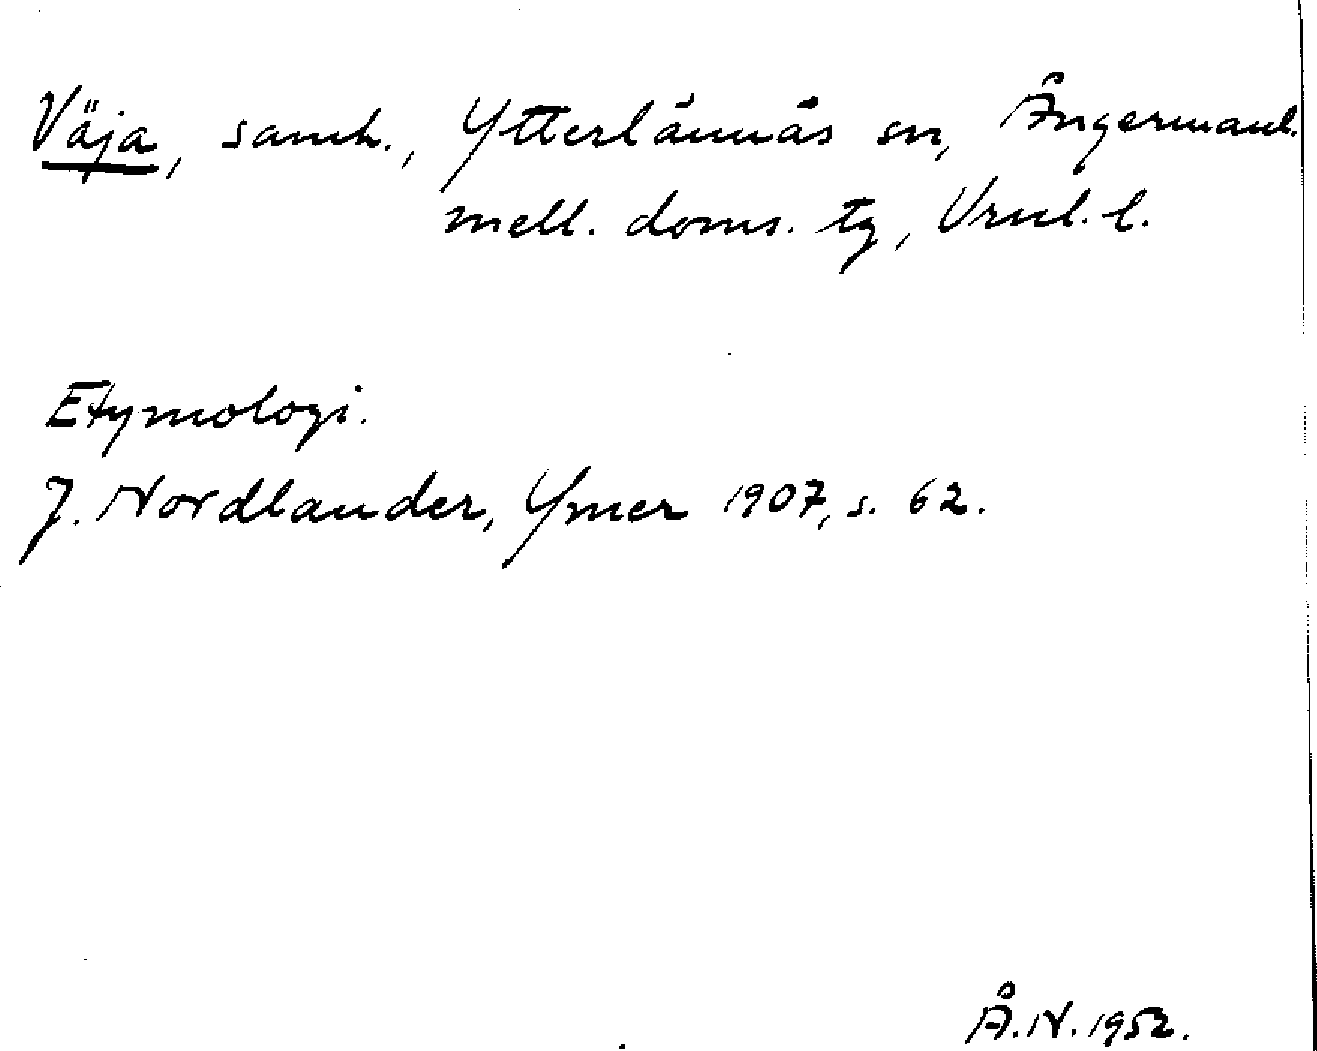 Väja, samh., Ytterlännäs sn, Ångermanl.
mell. doms. tg, Vrnl. l.
Etymologi.
J. Nordlander, Ymer 1907, s. 62.
Å.N. 1952.